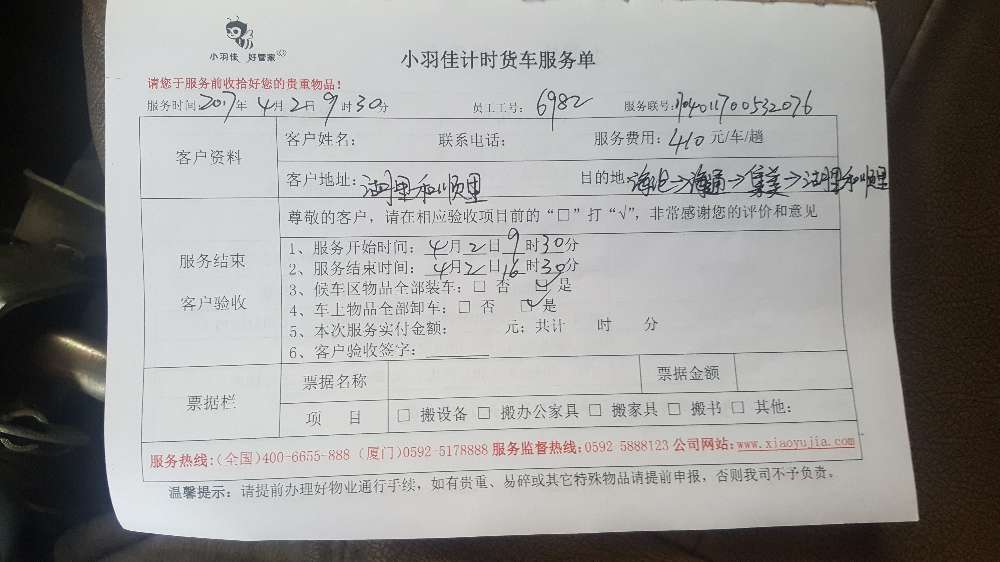 小羽佳 好管家
小羽佳计时货车服务单
请您于服务前收拾好您的贵重物品！
服务时间:2017年 4月2日9时30分 员工工号：6982 服务联号:
客户资料
客户姓名： 联系电话： 服务费用：410元/车/趟
客户地址：湖里和顺里 目的地:海沧→海通→集美→湖里和顺里
服务结束
客户验收
尊敬的客户，请在相应验收项目前的“□”打“√”，非常感谢您的评价和意见
1、服务开始时间：4月2日9时30分
2、服务结束时间：4月2日16时30分
3、候车区物品全部装车：□ 否 ☑ 是
4、车上物品全部卸车：□ 否 ☑ 是
5、本次服务实付金额： 元；共计 时 分
6、客户验收签字：
票据栏
票据名称 票据金额
项 目 □ 搬设备 □ 搬办公家具 □ 搬家具 □ 搬书 □ 其他：
服务热线：(全国)400-6655-888 (厦门)0592-5178888 服务监督热线：0592-5888123 公司网站：www.xiaoyujia.com
温馨提示：请提前办理好物业通行手续，如有贵重、易碎或其它特殊物品请提前申报，否则我司不予负责。